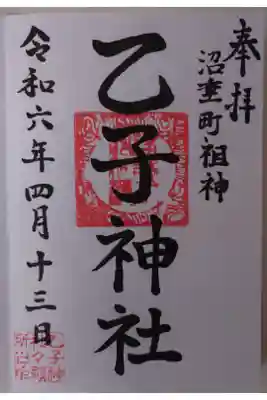 奉拝
沼垂町祖神
乙子神社
令和六年四月十三日